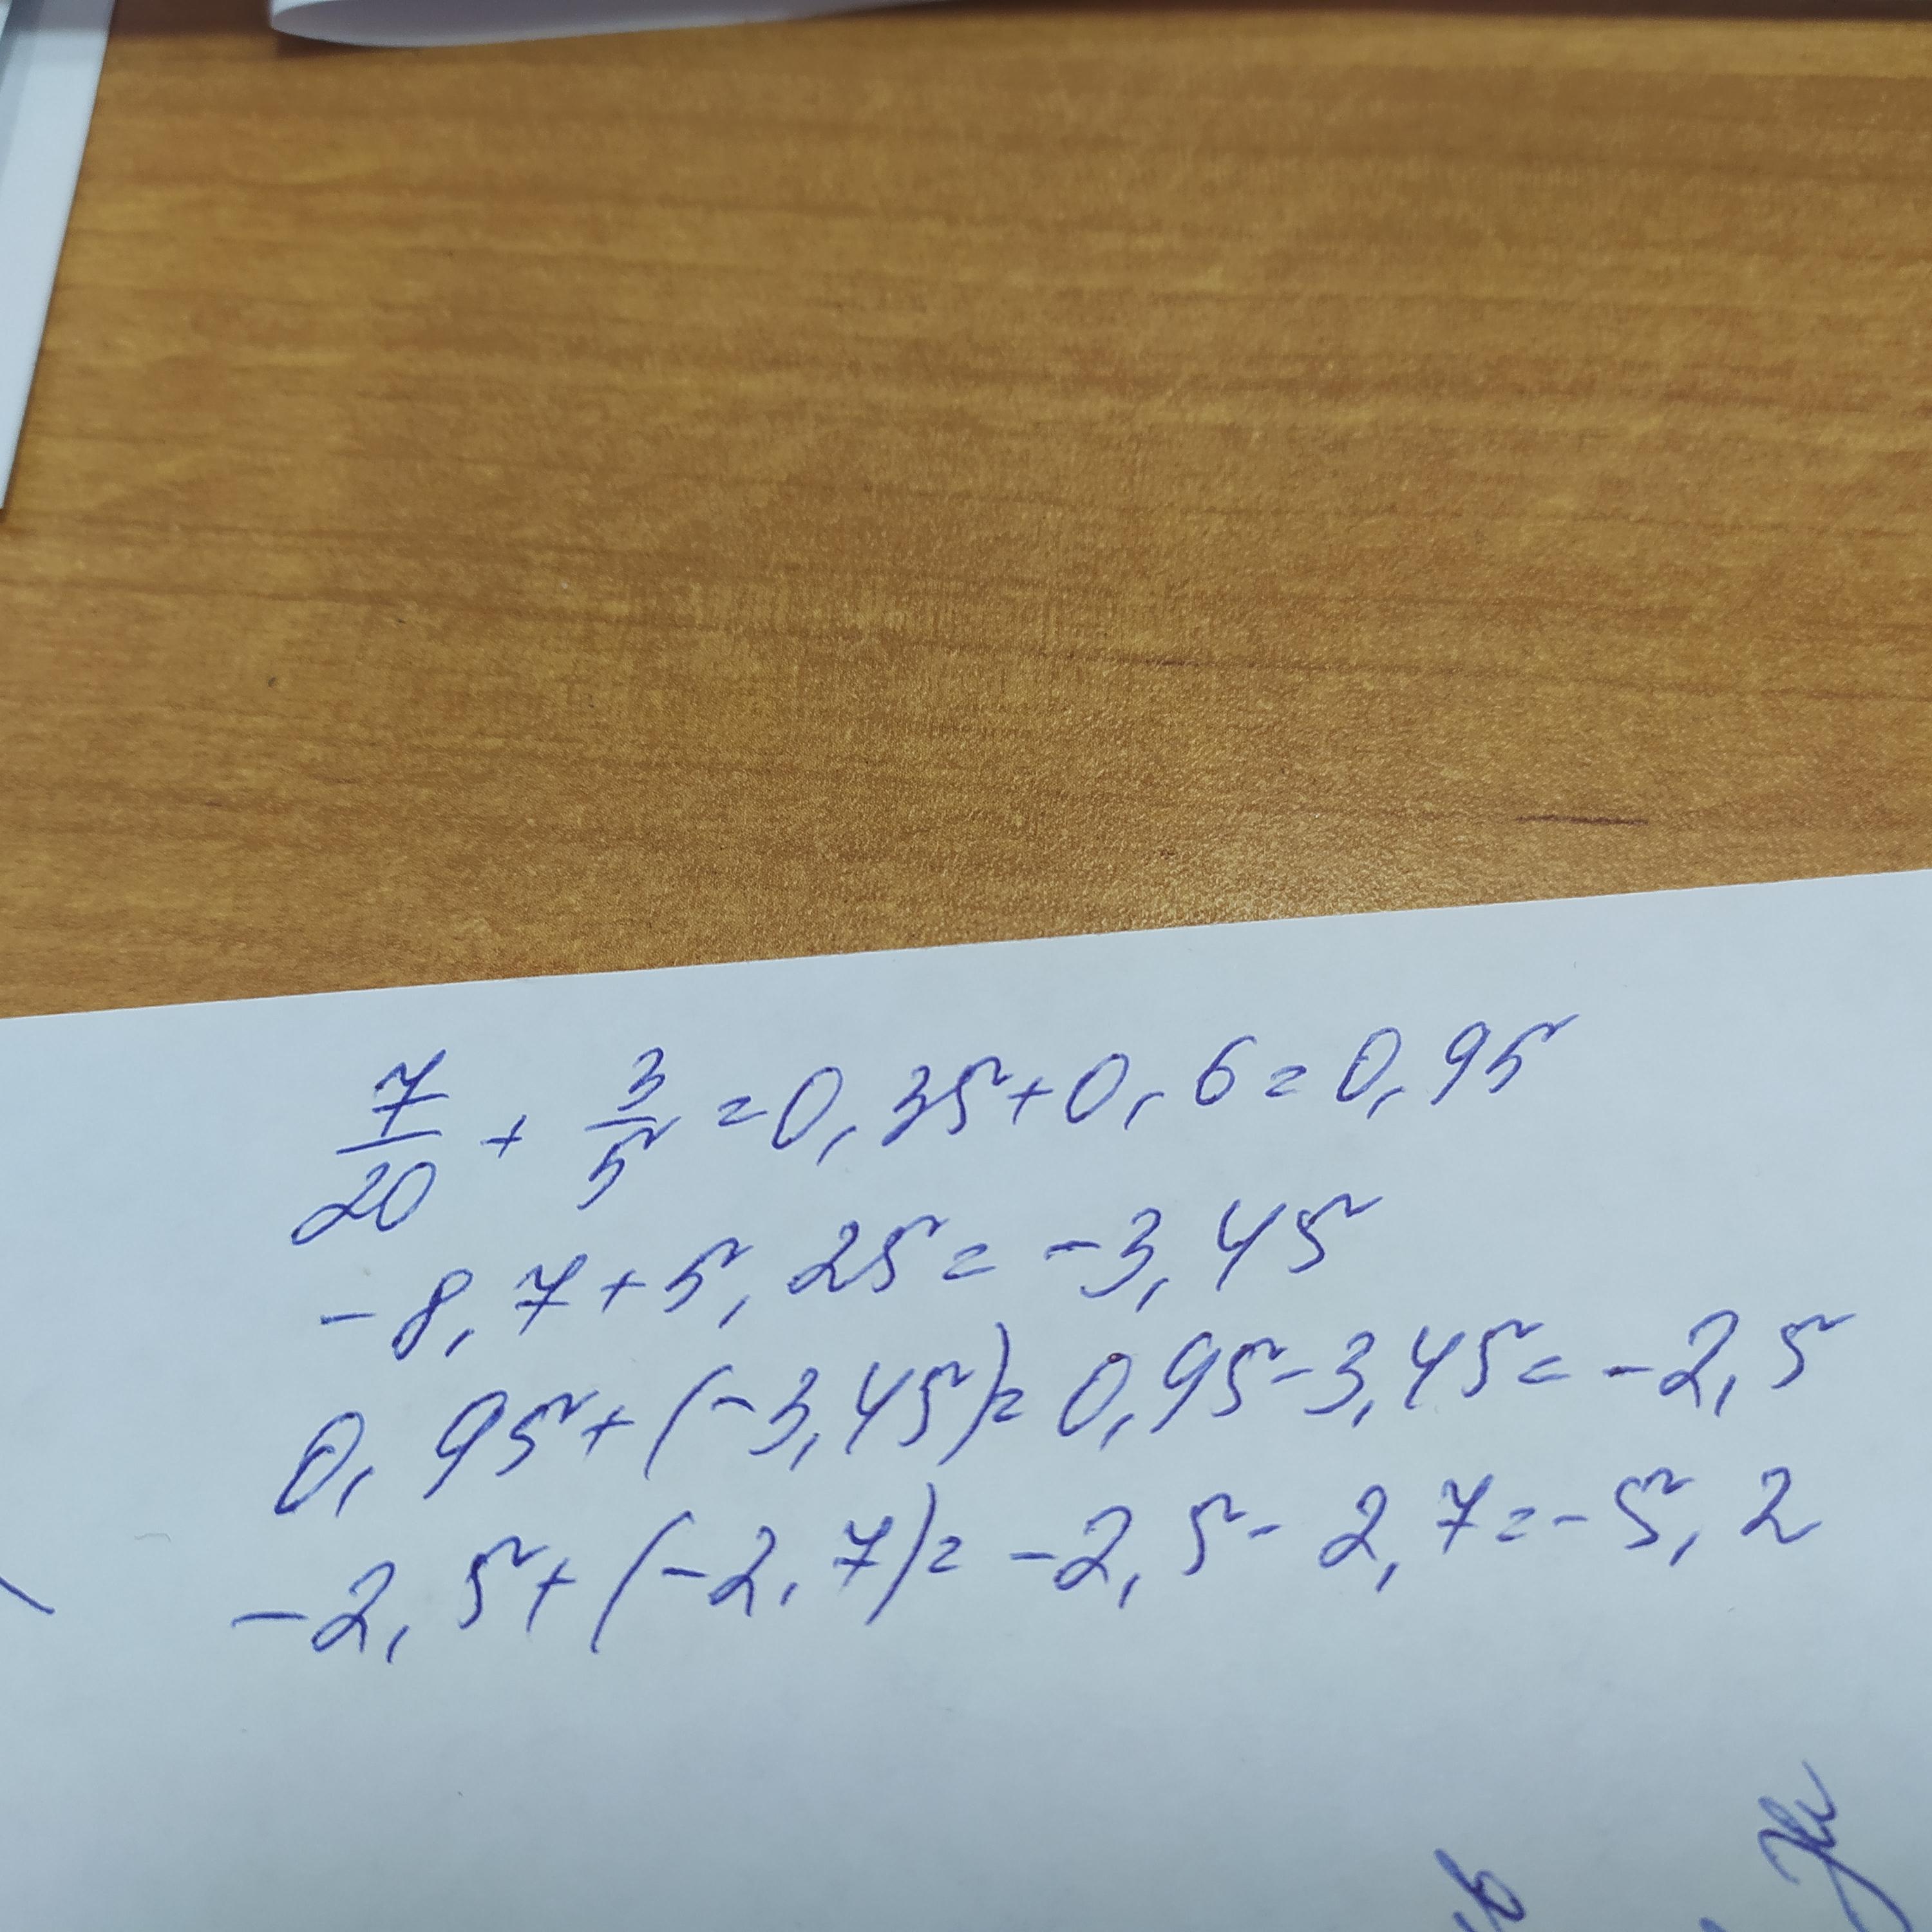 7/20 + 3/5 = 0,35 + 0,6 = 0,95
-8,7 + 5,25 = -3,45
0,95 + (-3,45) = 0,95 - 3,45 = -2,5
-2,5 + (-2,7) = -2,5 - 2,7 = -5,2